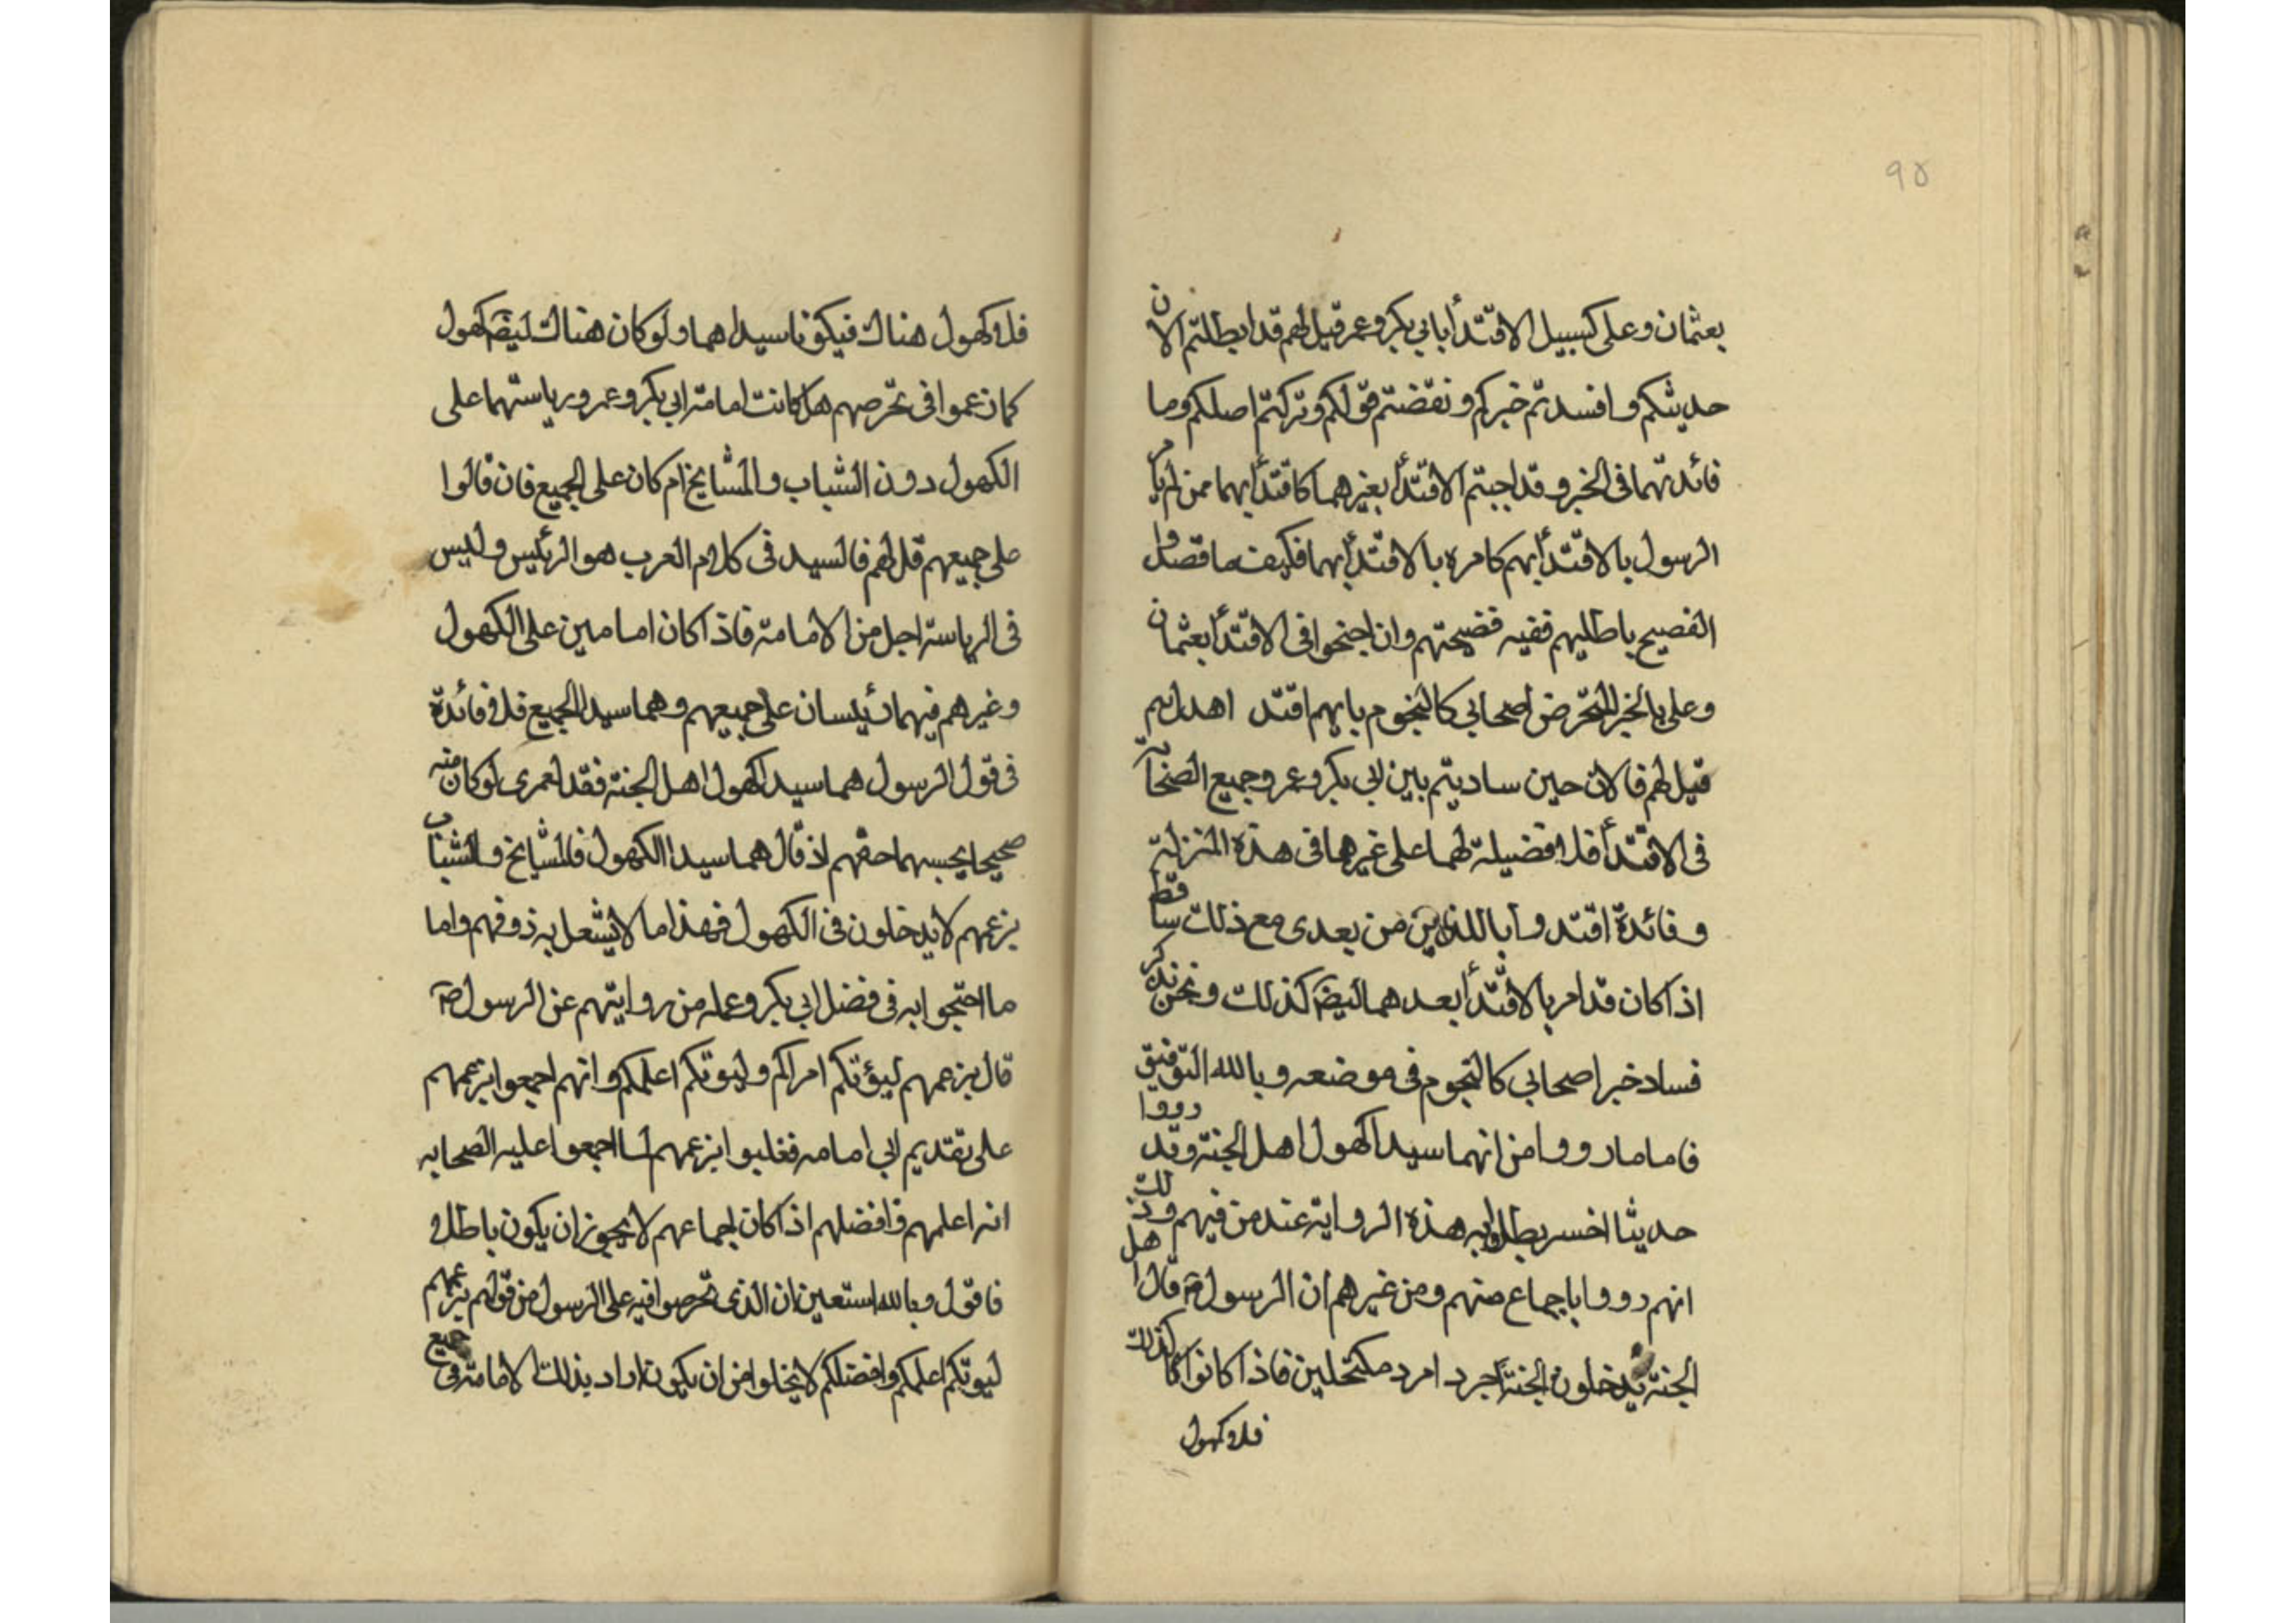 ٩٥
بعثمان وعلى كسبيل الاقتدأ بابي بكر وعمر قيل لهم قد ابطلتم الان
حديثكم وافسدتم خبركم ونقضتم قولكم وتركتم اصلكم وما
فائدتهما فى الخبر وقد اجبتم الاقتدأ بغيرهما كاقتدأ بهما ممن لم يأمر
الرسول بالاقتدأ بهم كامره بالاقتدأ بهما فكيف ما قصدوا
الفصيح باطلهم ففيه فضيحتهم وان اجنحوا فى الاقتدأ بعثمان
وعلى بالخبر المتخرض اصحابى كالنجوم بايهم اقتد اهديتم
قيل لهم فالان حين ساديتم بين ابى بكر وعمر وجميع الصحابة
فى الاقتدأ فلا فضيلة لهما على غيرهما فى هذه المنزلة
وفائدة اقتدوا باللذين من بعدى مع ذلك ساقط
اذا كان قد امر بالاقتدأ بعدهما ليضَ كذلك ونحن نذكر
فساد خبر اصحابى كالنجوم فى موضعه وبالله التوفيق
فاما ما رووا من انهما سيدا كهول اهل الجنة وقد رووا
حديثا اخسر بطلوا به هذه الرواية عند من فهم وذلك
انهم رووا باجماع منهم ومن غيرهم ان الرسول صَ قال اهل
الجنة يدخلون الجنة اجرد امرد مكتحلين فاذا كانوا كذلك
فلا كهول
فلا كهول هناك فيكونا سيداهما ولو كان هناك ليضَ كهول
كما زعموا فى تخرصهم هل كانت امامة ابى بكر وعمر ورياستهما على
الكهول دون الشباب والمشايخ ام كان على الجميع فان قالوا
على جميعهم قل لهم فالسيد فى كلام العرب هو الرئيس وليس
فى الرياسة اجل من الامامة فاذا كان امامين على الكهول
وغيرهم فهما رئيسان على جميعهم وهما سيدا الجميع فلا فائدة
فى قول الرسول هما سيدا كهول اهل الجنة فقد لعمرى لو كان منه
صحيحا يحبسهما حقهم اذ قال هما سيدا الكهول فالمشايخ والشباب
بزعمهم لا يدخلون فى الكهول فهذا ما لا يشعل به ذو فهم واما
ما احتجوا به فى فضل ابى بكر وعمله من روايتهم عن الرسول صَ
قال بزعمهم ليؤتكم امراكم وليوتكم اعلمكم وانهم اجمعوا بزعمهم
على تقديم ابى امامه فغلبوا بزعمهم لما اجمعوا عليه الصحابه
انه اعلمهم وافضلهم اذا كان اجماعهم لا يجوز ان يكون باطلا
فاقول وبالله استعين ان الذى تخرصوا فيه على الرسول من قولهم بزعمهم
ليوتكم اعلمكم وافضلكم لا يخلوا من ان يكون اراد بذلك الامامة فى جميع